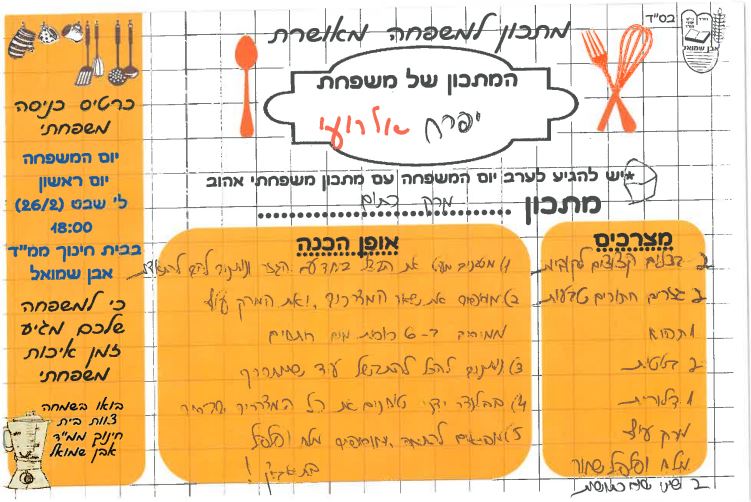 בס"ד
אבן שמואל
מתכון למשפחה מאושרת
המתכון של משפחת
יפרח אלרועי
*יש להגיע לערב יום המשפחה עם מתכון משפחתי אהוב
מתכון מרק כתום
מצרכים
2 בצלים קצוצים לקוביות
2 גזרים חתוכים טבעות
1 תפוא
2 בטטות
1 דלורית
מרק עוף
מלח ופלפל שחור
2 שיני שום כתושות
אופן הכנה
1) מטגנים מעט את הבצל ביחד עם הגזר ונותנים להם להתאדות
2) מוסיפים את שאר המצרכים, ואת המרק עוף
ממיסים ב-6 כוסות מים רותחים
3) נותנים להכל להתבשל עד שמתרכך
4) בבלנדר ידני טוחנים את כל המצרכים
5) מביאים לרתיחה, ומוסיפים מלח ופלפל
בתאבון!
כרטיס כניסה
משפחתי
יום המשפחה
יום ראשון
ל' שבט (26/2)
18:00
בבית חינוך ממ"ד
אבן שמואל
כי למשפחה
שלכם מגיע
זמן איכות
משפחתי
בואו בשמחה
צוות בית
חינוך ממ"ד
אבן שמואל